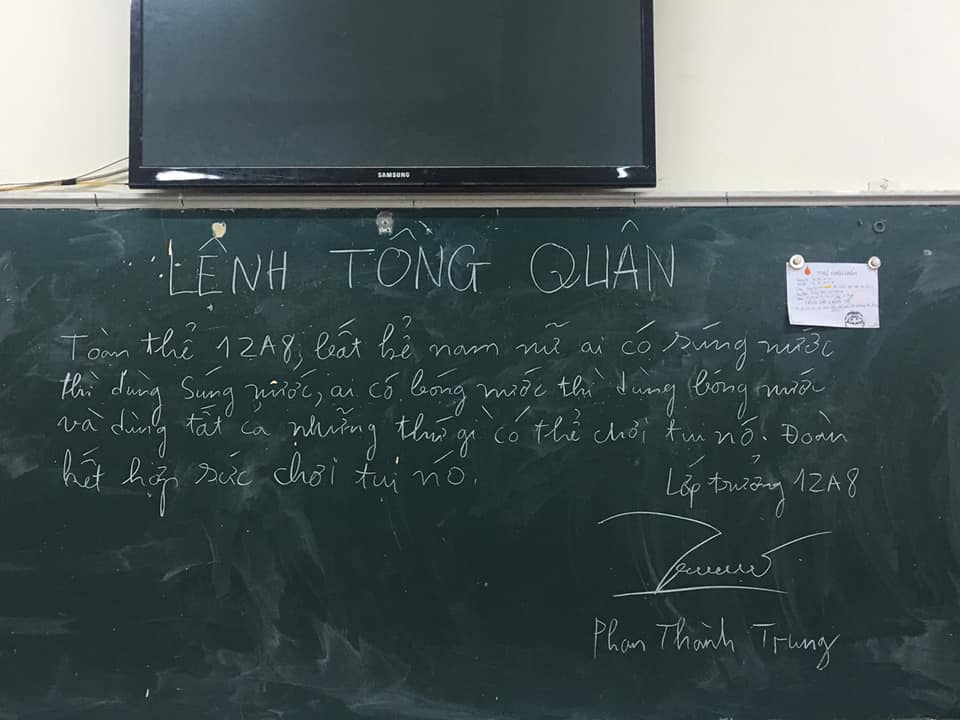 SAMSUNG
LỆNH TỔNG QUÂN
Toàn thể 12A8, bất kể nam nữ ai có súng nước
thì dùng súng nước, ai có bóng nước thì dùng bóng nước
và dùng tất cả những thứ gì có thể chơi tụi nó. Đoàn
kết hợp sức chơi tụi nó.
Lớp trưởng 12A8
Phan Thành Trung